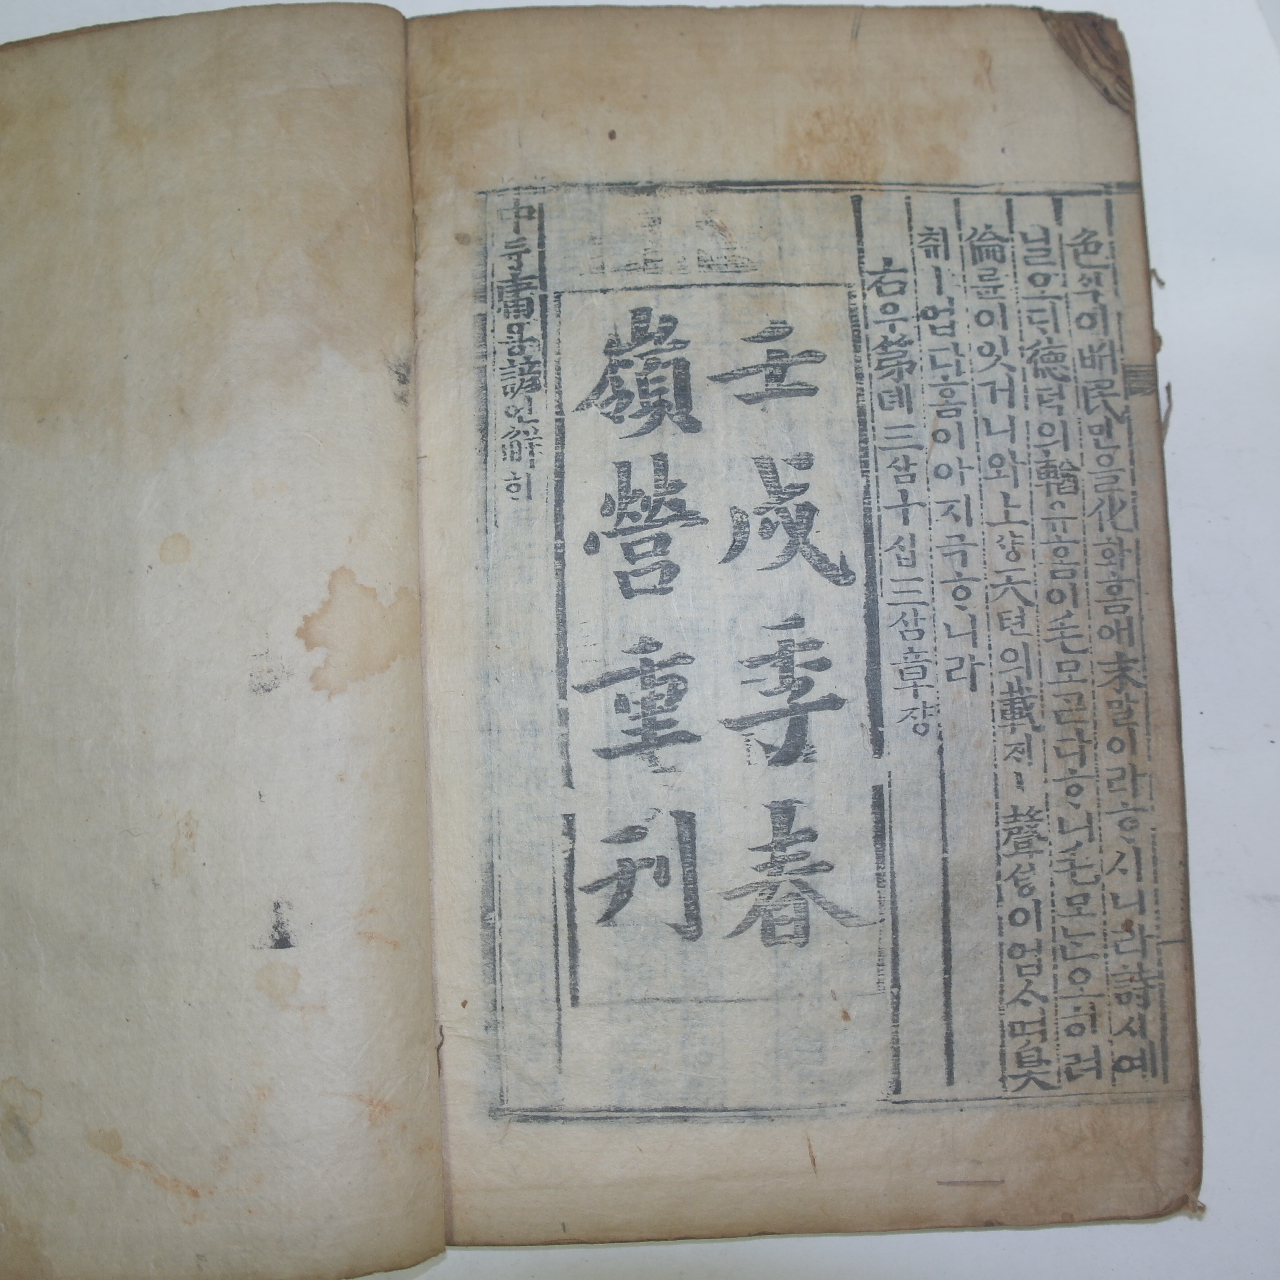 色ᄉᆡᆨ이 ᄡᅥ 民민을 化화홈애 末말이라 ᄒᆞ시니라 詩시예
닐오ᄃᆡ 德덕의 輶유홈이 毛모ᄀᆞᆮ다 ᄒᆞ니 毛모ᄂᆞᆫ 오히려
倫륜이 잇거니와 上샹天텬의 載ᄌᆡㅣ 聲셩이 업스며 臭
취ㅣ 업다 홈이아 지극ᄒᆞ니라
右우第뎨三삼十십三삼章쟝
壬戌季春
嶺營重刊
中듕庸용諺언解ᄒᆡ